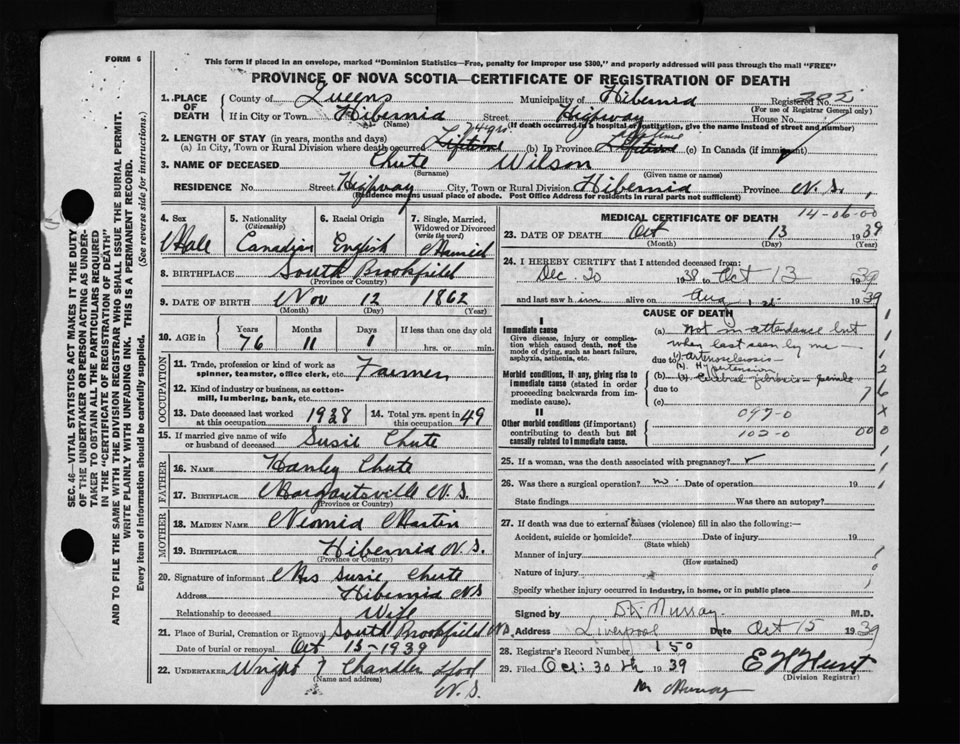 FORM 6
This form if placed in an envelope, marked "Dominion Statistics—Free, penalty for improper use $300," and properly addressed will pass through the mail "FREE"
PROVINCE OF NOVA SCOTIA—CERTIFICATE OF REGISTRATION OF DEATH
1. PLACE OF DEATH County of Queens Municipality of Hibernia Registered No. 202
(For use of Registrar General only)
If in City or Town Hibernia Street Highway House No.
(Name) (If death occurred in a hospital or institution, give the name instead of street and number)
2. LENGTH OF STAY (in years, months and days)
(a) In City, Town or Rural Division where death occurred Lifetime 74 yrs (b) In Province Lifetime (c) In Canada (if immigrant)
3. NAME OF DECEASED Chute Wilson
(Surname) (Given name or names)
RESIDENCE No. Street Highway City, Town or Rural Division Hibernia Province N.S.
(Residence means usual place of abode. Post Office Address for residents in rural parts not sufficient)
4. Sex 5. Nationality (Citizenship) 6. Racial Origin 7. Single, Married, Widowed or Divorced (write the word)
Male Canadian English Married
8. BIRTHPLACE South Brookfield
(Province or Country)
9. DATE OF BIRTH Nov 12 1862
(Month) (Day) (Year)
10. AGE in Years Months Days If less than one day old
76 11 1 hrs. or min.
OCCUPATION
11. Trade, profession or kind of work as spinner, teamster, office clerk, etc. Farmer
12. Kind of industry or business, as cotton-mill, lumbering, bank, etc.
13. Date deceased last worked at this occupation 1938 14. Total yrs. spent in 49
15. If married give name of wife or husband of deceased Susie Chute
FATHER
16. NAME Hanley Chute
17. BIRTHPLACE Margaretsville N.S.
MOTHER
18. MAIDEN NAME Neomia Martin
19. BIRTHPLACE Hibernia N.S.
(Province or Country)
20. Signature of informant Mrs Susie Chute
Address Hibernia N.S
Relationship to deceased Wife
21. Place of Burial, Cremation or Removal South Brookfield N.S.
Date of burial or removal Oct 15-1939
22. UNDERTAKER Wright & Chandler Lpool
(Name and address) N.S.
MEDICAL CERTIFICATE OF DEATH 14-06-00
23. DATE OF DEATH Oct 13 1939
(Month) (Day) (Year)
24. I HEREBY CERTIFY that I attended deceased from:
Dec. 20 1938 to Oct 13 1939
and last saw him alive on Aug 1939
CAUSE OF DEATH
I
Immediate cause
Give disease, injury or complication which caused death, not the mode of dying, such as heart failure, asphyxia, asthenia, etc.
Morbid conditions, if any, giving rise to immediate cause (stated in order proceeding backwards from immediate cause).
II
Other morbid conditions (if important) contributing to death but not causally related to immediate cause.
(a) Not in attendance but
when last seen by me—
due to (1) arteriosclerosis—
(b) (2) Hypertension
due to
(c)
097-0
102-0
25. If a woman, was the death associated with pregnancy?
26. Was there a surgical operation? no. Date of operation 19
State findings Was there an autopsy?
27. If death was due to external causes (violence) fill in also the following:—
Accident, suicide or homicide? Date of injury 19
(State which)
Manner of injury
(How sustained)
Nature of injury
Specify whether injury occurred in industry, in home, or in public place
Signed by Murray M.D.
Address Liverpool Date Oct 15 1939
28. Registrar's Record Number 150
29. Filed Oct: 30th 1939 E H Hunt
(Division Registrar)
Mr Murray
SEC. 46—VITAL STATISTICS ACT MAKES IT THE DUTY OF THE UNDERTAKER OR PERSON ACTING AS UNDERTAKER TO OBTAIN ALL THE PARTICULARS REQUIRED IN THE "CERTIFICATE OF REGISTRATION OF DEATH" AND TO FILE THE SAME WITH THE DIVISION REGISTRAR WHO SHALL ISSUE THE BURIAL PERMIT.
WRITE PLAINLY WITH UNFADING INK. THIS IS A PERMANENT RECORD.
Every item of Information should be carefully supplied. (See reverse side for instructions.)